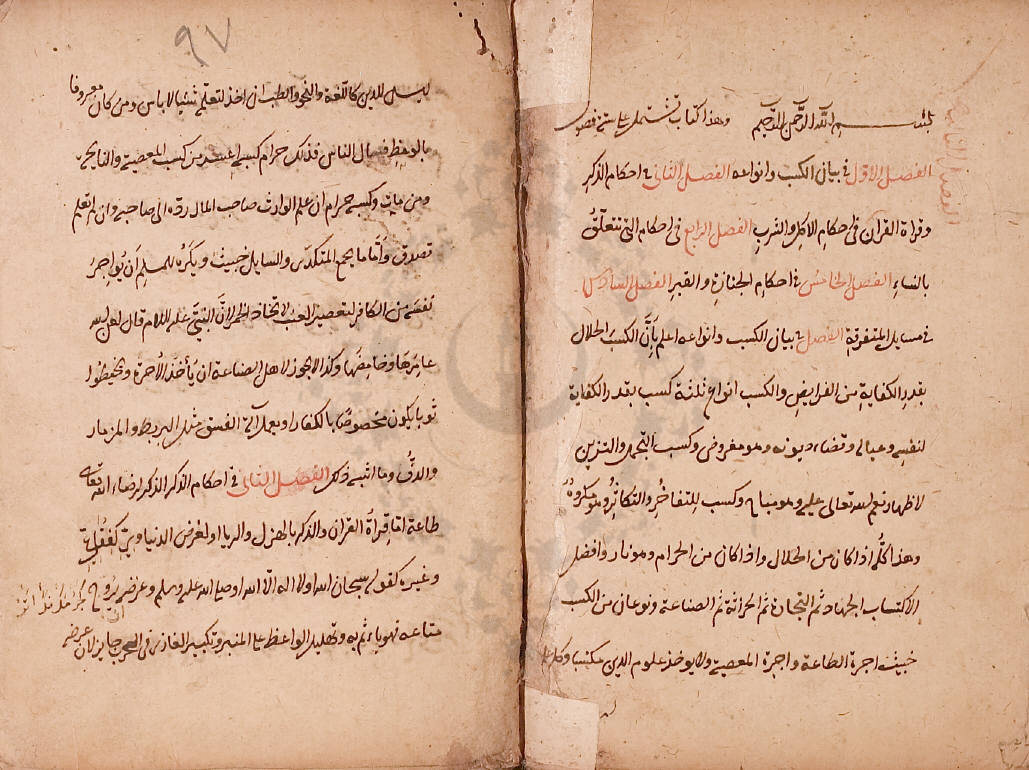 بسم الله الرحمن الرحيم وهذا كتاب تشتمل على ستة فصول
الفصل الاول في بيان الكسب وانواعه الفصل الثاني في احكام الذكر
وقراة القران في احكام الاكل والشرب الفصل الرابع في احكام التي تتعلق
بالنساء الفصل الخامس في احكام الجنازة والقبر الفصل السادس
في مسايل المتفرقة الفصل في بيان الكسب وانواعه اعلم بأن الكسب الحلال
بقدر الكفاية من الفرايض والكسب انواع ثلثة كسب بقدر الكفاية
لنفسه وعياله وقضاء ديونه وهو مفروض وكسب التجمل والتزين
لاظهار نعم الله تعالى عليه وهو مباح وكسب للتفاخر والتكاثر وهو مكروه
وهذا كله اذا كان من الحلال واذا كان من الحرام وهو نار وافضل
الاكتساب الجهاد ثم التجارة ثم الحراثة ثم الصناعة ونوعان من الكسب
خبيث اجرة الطاعة واجرة المعصية ولا يوخذ علوم الدين مكتسبا وكل علم
ليس للدين كاللغة والنحو والطب ان اخذ لتعلمه شيئا لا باس ومن كان معروفا
بالوعظ فسال الناس فذلك حرام كسبه من كسب المعصية
ومن مات وكسبه حرام ان علم الوارث صاحب المال رده الى صاحبه وان لم يعلم
تصدق وأما ما يجمع المتكدي والسايل خبيث ويكره للمسلم ان يواجر
نفسه من الكافر لتعصير العنب لاتخاذ الخمر لان النبي عليه السلام قال لعن الله
عاصرها وحاملها وكذا لا يجوز لاهل الصناعة ان يأخذ الاجرة ويخيطوا
ثوبا يكون مخصوصا بالكفار او يعمل آلة الفسق مثل البربط والمزمار
والدف وما اشبه ذلك الفصل الثاني في احكام الذكر الذكر لرضاء الله تعالى
طاعة اما قراة القران والذكر بالهزل والريا او لغرض الدنياوية
وغيره كقوله سبحان الله ولا اله الا الله او صلى الله عليه وسلم وغرضه يروج
متاعه فهو ياثم به وتهليل الواعظ على المنبر وتكبير الغازي في الحرب جايز لان غرضه
٩٧